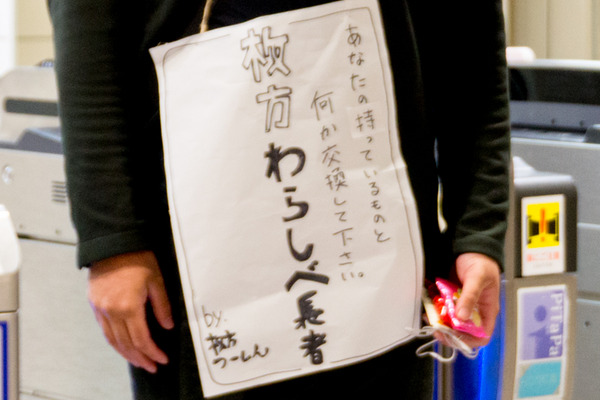 あなたの持っているものと
何か交換して下さい。
枚方わらしべ長者
by.
枚方
つーしん
PiTaPa